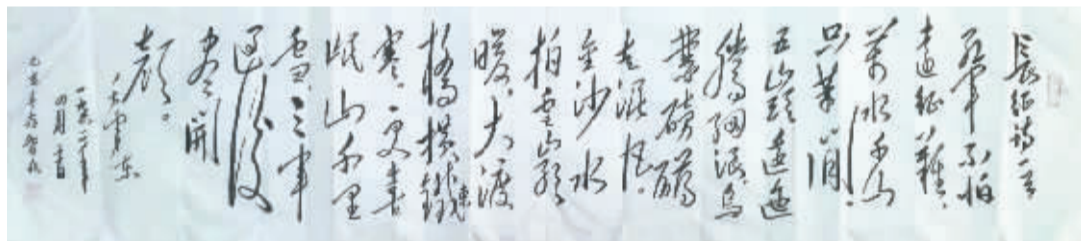 長征詩一首
紅軍不怕
遠征難,
萬水千山
只等閒
五嶺逶迤
騰細浪,烏
蒙磅礴
走泥丸。
金沙水
拍雲崖
暖,大渡
橋橫鐵索
寒。更喜
岷山千里
雪,三軍
過後
盡開
顏。
毛澤東
一九六二年
四月 書